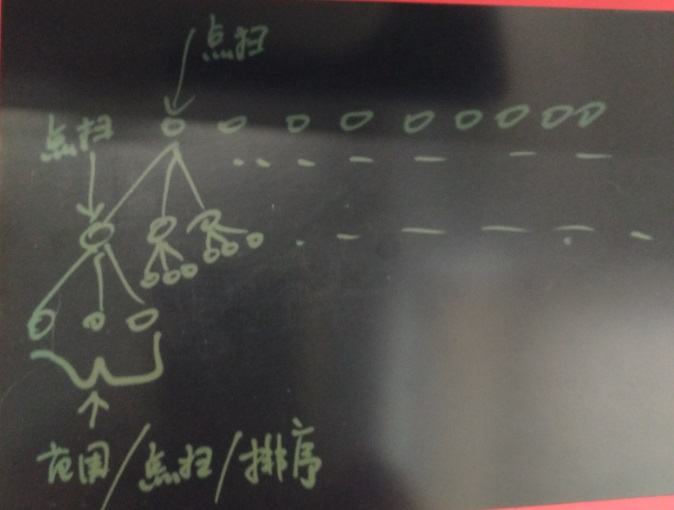 点扫
点扫
范围/点扫/排序